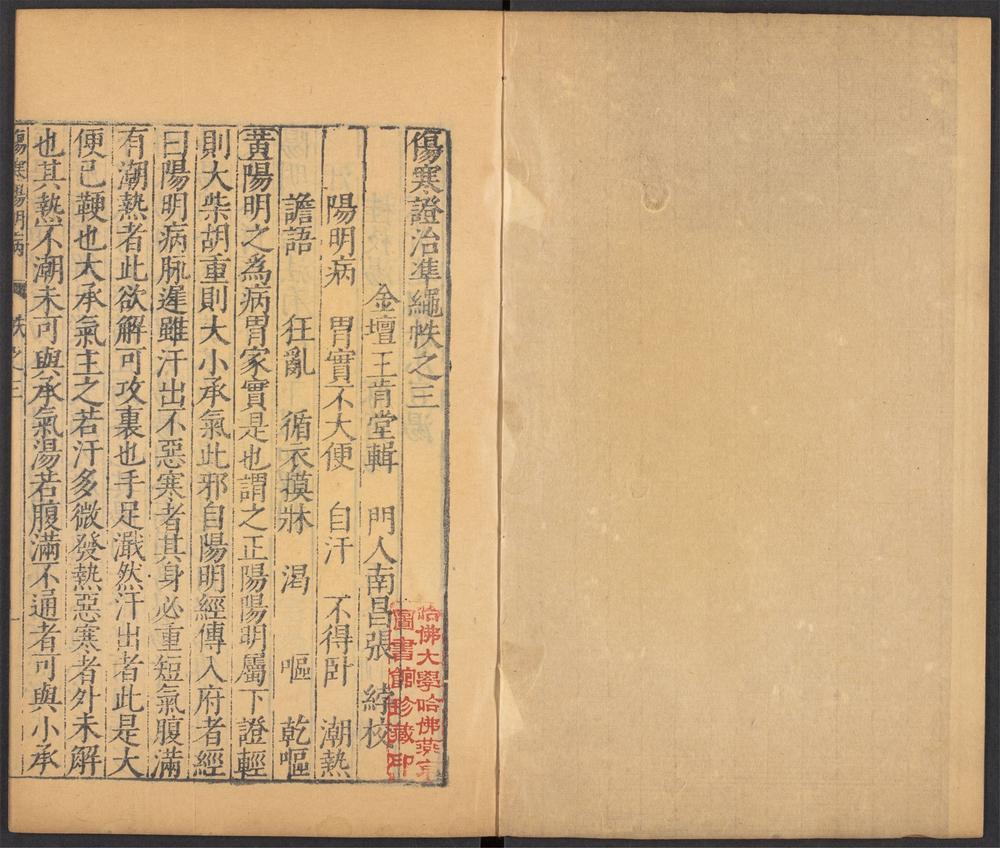 傷寒證治準繩帙之三
金壇王肯堂輯　門人南昌張　綍校
陽明病　胃實不大便　自汗　不得卧　潮熱
譫語　狂亂　循衣摸牀　渴　嘔　乾嘔
黃陽明之為病胃家實是也謂之正陽陽明屬下證輕
則大柴胡重則大小承氣此邪自陽明經傳入府者經
曰陽明病脉遲雖汗出不惡寒者其身必重短氣腹滿
有潮熱者此欲解可攻裏也手足濈然汗出者此是大
便已鞕也大承氣主之若汗多微發熱惡寒者外未解
也其熱不潮未可與承氣湯若腹滿不通者可與小承
傷寒陽明病　帙之三　一
哈佛大學哈佛燕京
圖書館珍藏印